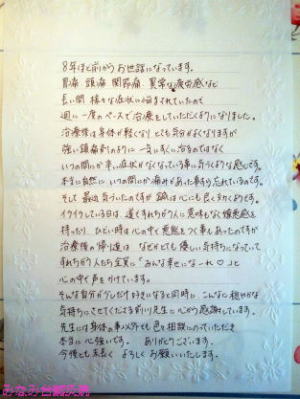 8年ほど前からお世話になっています。
胃痛 頭痛 関節痛 異常な疲労感など
長い間 様々な症状に悩まされていたので
週に一度のペースで治療をしていただくようになりました。
治療後は身体が軽くなり とても気分がよくなりますが
強い鎮痛剤のように 一気にすぐに治るのではなく
いつの間にか辛い症状がなくなっている事に気づくような感じです。
本当に自然に いつの間にか痛みがあった事すら忘れているのです。
そして最近気づいたのですが 鍼は心にも良く効くようです。
イライラしている日は、道ですれちがう人に意味もなく嫌悪感を
持ったり、ひどい時は心の中で悪態をつく事もあったのですが
治療後の帰り道は なぜかとても優しい気持ちになっていて
すれちがう人たち全員に「みんな幸せになーれ♡」と
心の中で声をかけています。
そんな自分が少しだけ好きになると同時に、こんなに穏やかな
気持ちにさせてくださる前川先生に心から感謝しています。
先生には身体の事以外でも色々相談にのっていただき
本当に心強いです。 ありがとうございます。
今後とも末長く よろしくお願いいたします。
みなみ台鍼灸院